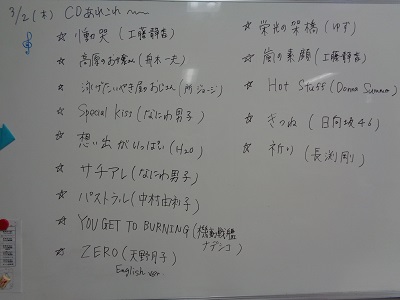 3/2(木) CDあれこれ〜
☆ 慟哭 (工藤静香)
☆ 高原のお嬢さん (舟木一夫)
☆ 泳げたいやき屋のおじさん (所ジョージ)
☆ Special Kiss (なにわ男子)
☆ 想い出がいっぱい (H2O)
☆ サチアレ (なにわ男子)
☆ パストラル (中村由利子)
☆ YOU GET TO BURNING (機動戦艦
ナデシコ)
☆ ZERO (天野月子)
English ver.
☆ 栄光の架橋 (ゆず)
☆ 嵐の素顔 (工藤静香)
☆ Hot Stuff (Donna Summer)
☆ きつね (日向坂46)
☆ 祈り (長渕剛)